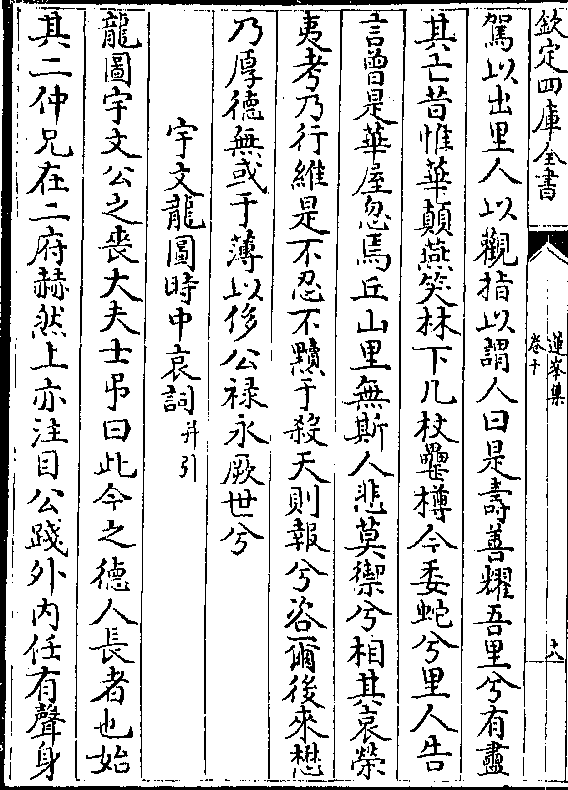 欽定四庫全書
蓮峯集
卷十
十八
駕以出里人以觀指以謂人曰是壽善耀吾里兮有盡
其亡昔惟華顛燕笑林下几杖罍樽今委蛇兮里人告
言曾是華屋忽焉丘山里無斯人悲莫禦兮相其哀榮
夷考乃行維是不忍不黷于殺天則報兮咨爾後來懋
乃厚德無或于薄以侈公祿永厥世兮
宇文龍圖時中哀詞并引
龍圖宇文公之喪大夫士弔曰此今之德人長者也始
其二仲兄在二府赫然上亦注目公踐外内任有聲身